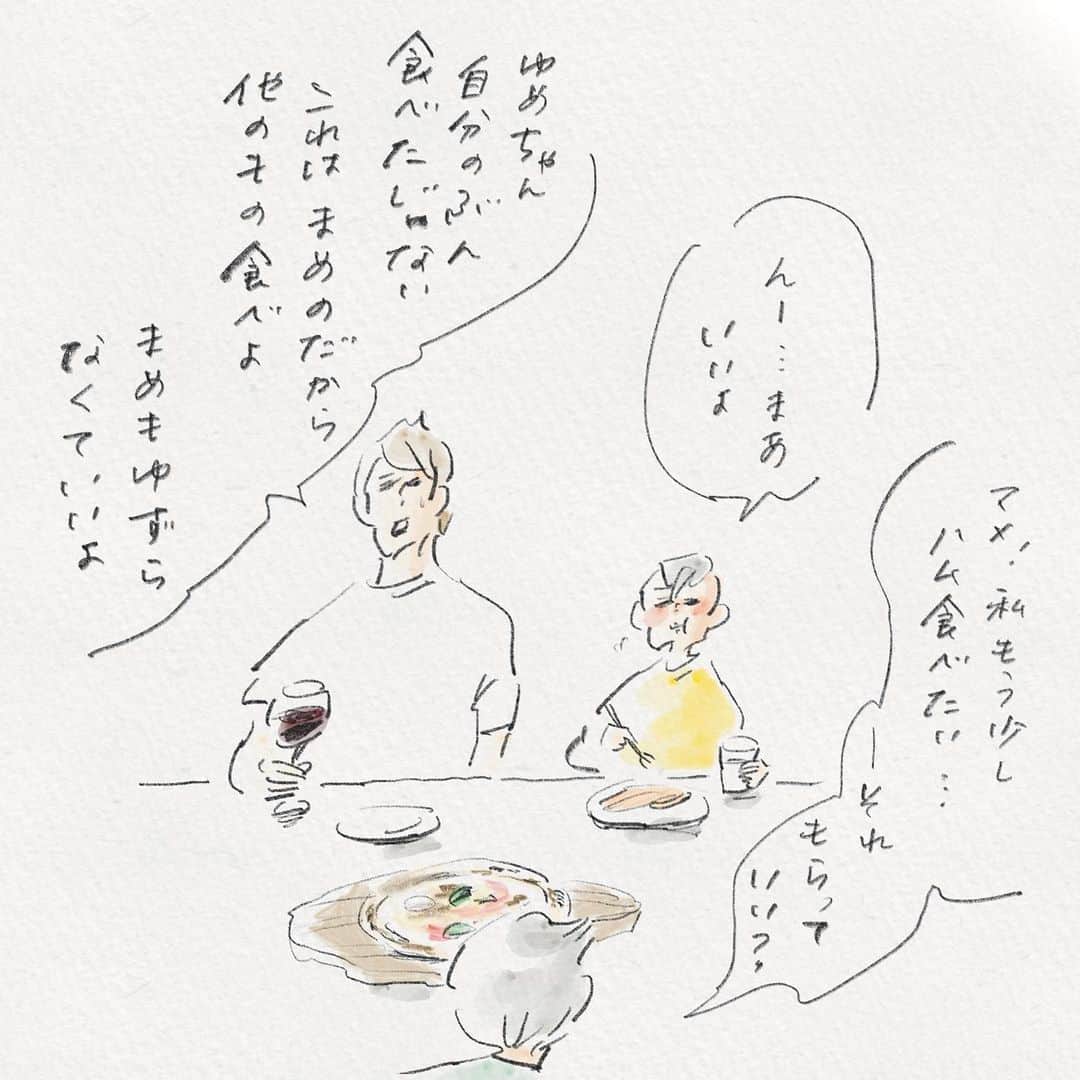 マメ！私もう少し
ハム食べたい…
ーそれ
もらって
いい？
んー…まあ
いいよ
ゆめちゃん
自分のぶん
食べたじゃない
これはまめのだから
他のもの食べよ
まめもゆずら
なくていいよ